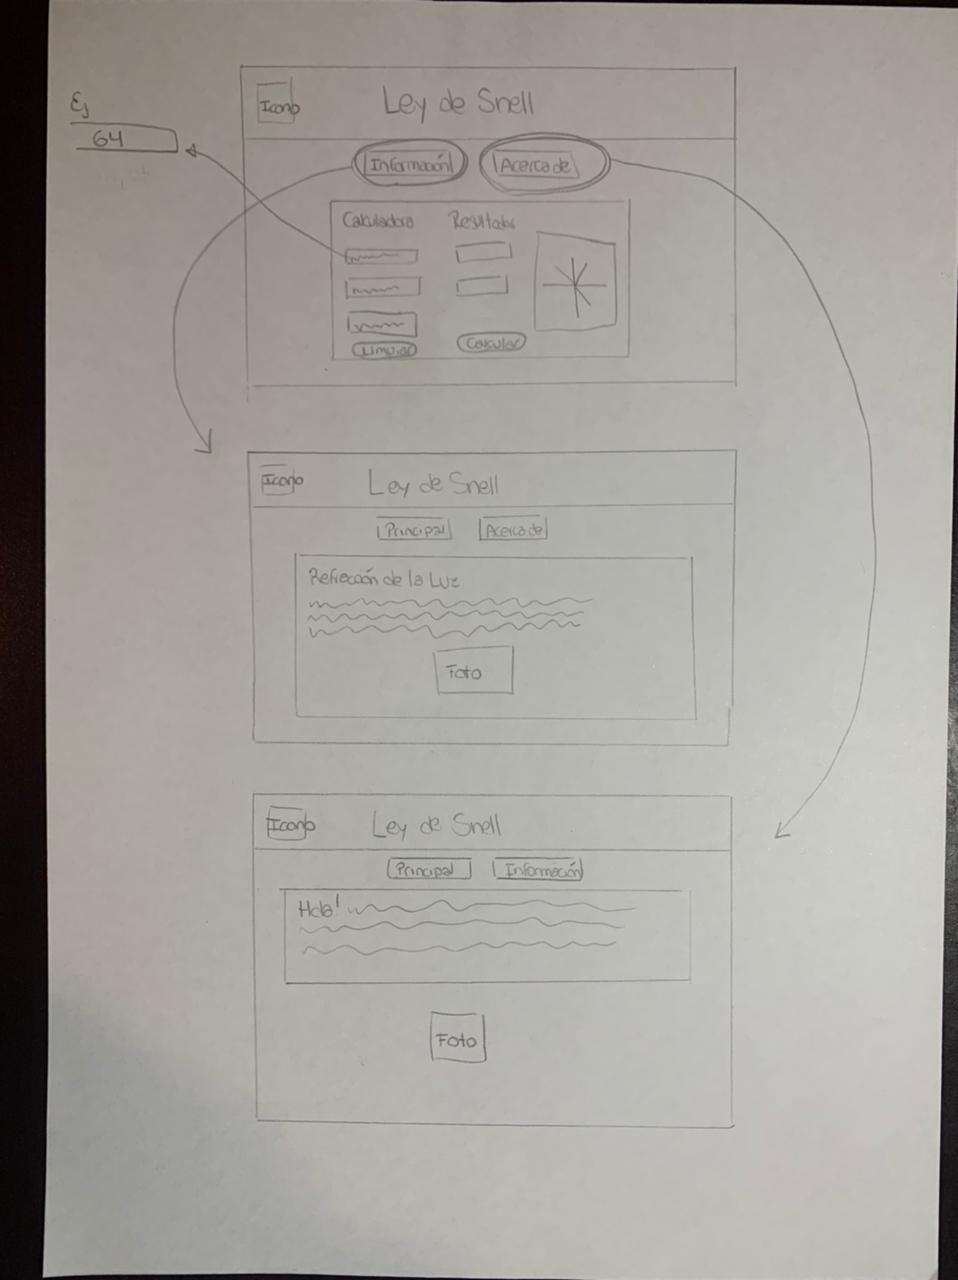 Ej
64
Icono
Ley de Snell
Información
Acerca de
Calculadora
Resultados
Limpiar
Calcular
Icono
Ley de Snell
Principal
Acerca de
Refracción de la Luz
Foto
Icono
Ley de Snell
Principal
Información
Hola!
Foto